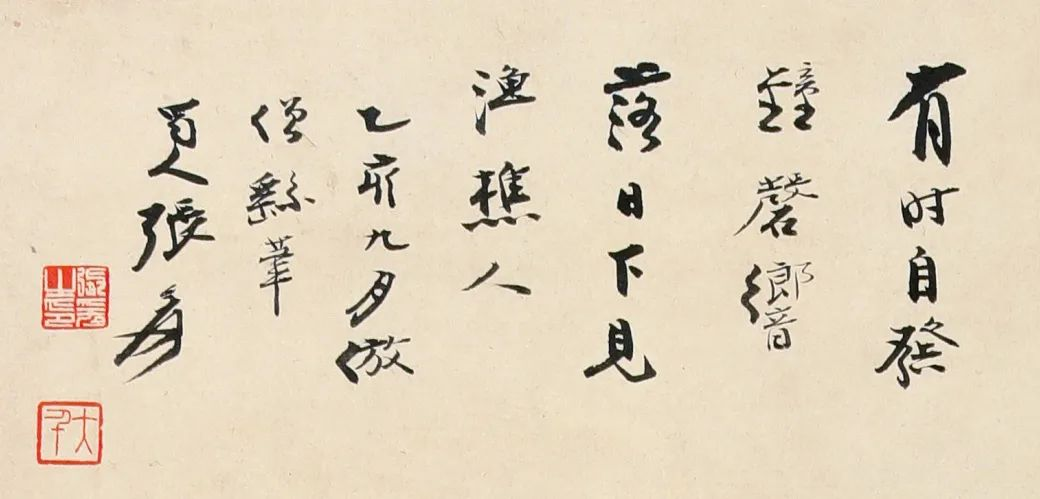 有时自發
鐘磬響
落日下見
漁樵人
乙亥九月倣
僧繇筆
蜀人張爰
大千